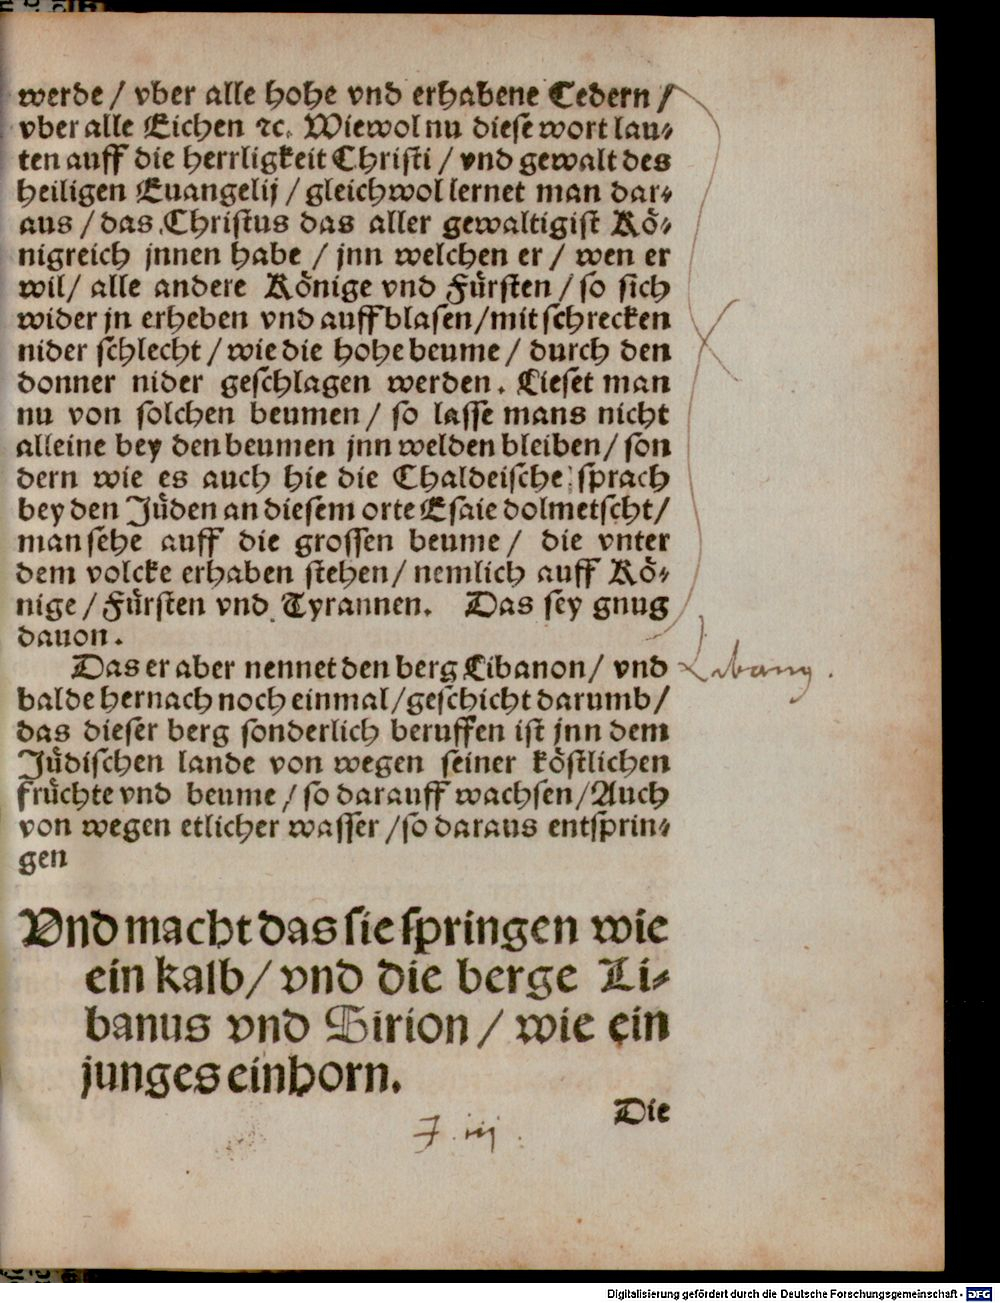 werde / vber alle hohe vnd erhabene Cedern /
vber alle Eichen ⁊c. Wiewol nu diese wort lau⸗
ten auff die herrligkeit Christi / vnd gewalt des
heiligen Euangelij / gleichwol lernet man dar⸗
aus / das Christus das aller gewaltigist Kö⸗
nigreich jnnen habe / jnn welchen er / wen er
wil / alle andere Könige vnd Fürsten / so sich
wider jn erheben vnd auffblasen / mit schrecken
nider schlecht / wie die hohe beume / durch den
donner nider geschlagen werden. Lieset man
nu von solchen beumen / so lasse mans nicht
alleine bey den beumen jnn welden bleiben / son
dern wie es auch hie die Chaldeische sprach
bey den Jüden an diesem orte Esaie dolmetscht /
man sehe auff die grossen beume / die vnter
dem volcke erhaben stehen / nemlich auff Kö⸗
nige / Fürsten vnd Tyrannen. Das sey gnug
dauon.
Das er aber nennet den berg Libanon / vnd
Libanus.
balde hernach noch einmal / geschicht darumb /
das dieser berg sonderlich beruffen ist jnn dem
Jüdischen lande von wegen seiner köstlichen
früchte vnd beume / so darauff wachsen / Auch
von wegen etlicher wasser / so daraus entsprin⸗
gen
Vnd macht das sie springen wie
ein kalb / vnd die berge Li⸗
banus vnd Sirion / wie ein
junges einhorn.
Die
F. iij.
Digitalisierung gefördert durch die Deutsche Forschungsgemeinschaft - DFG